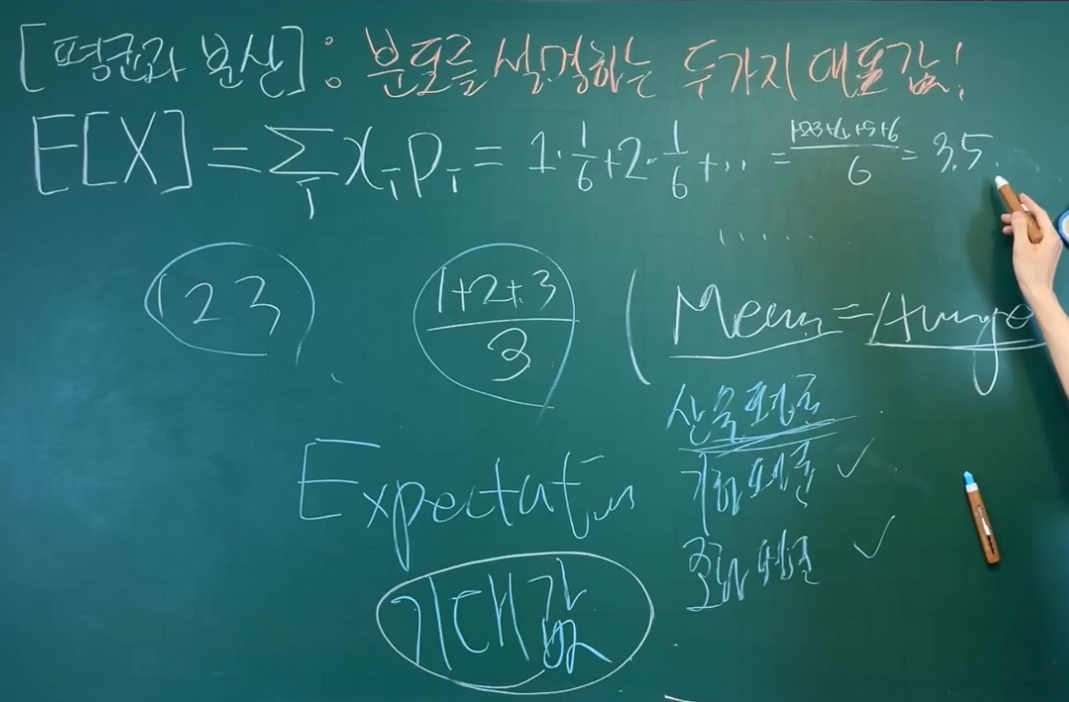 [평균과 분산] : 분포를 설명하는 두가지 대표값!
E[X] = ∑_i x_i p_i = 1·1/6 + 2·1/6 + ··· = (1+2+3+4+5+6)/6 = 3.5
1 2 3
(1+2+3)/3
( Mean = Average
산술평균
기하평균 ✓
조화평균 ✓
Expectation
기대값